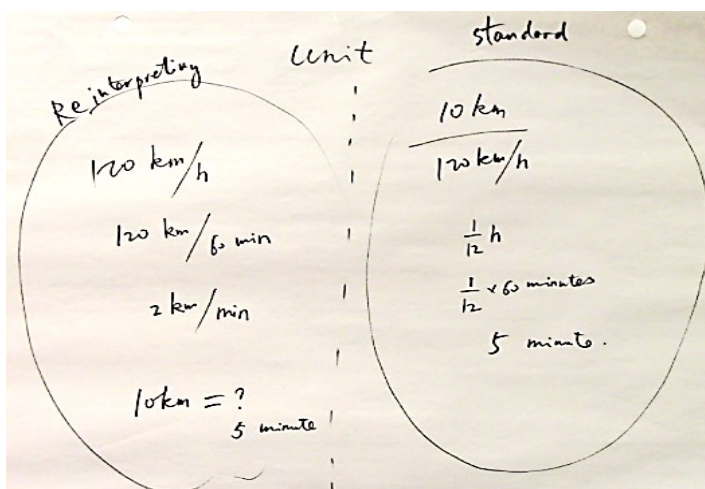 Unit
Reinterpreting
120 km/h
120 km/60 min
2 km/min
10km = ?
5 minute
standard
10 km
120 km/h
1/12 h
1/12 × 60 minutes
5 minute.